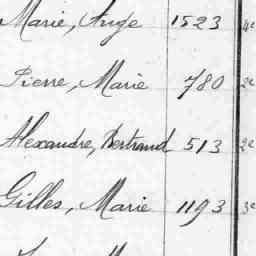 Marie, Ange 1523 4e
Pierre, Marie 780 2e
Alexandre, Bertrand 513 2e
Gilles, Marie 1193 3e